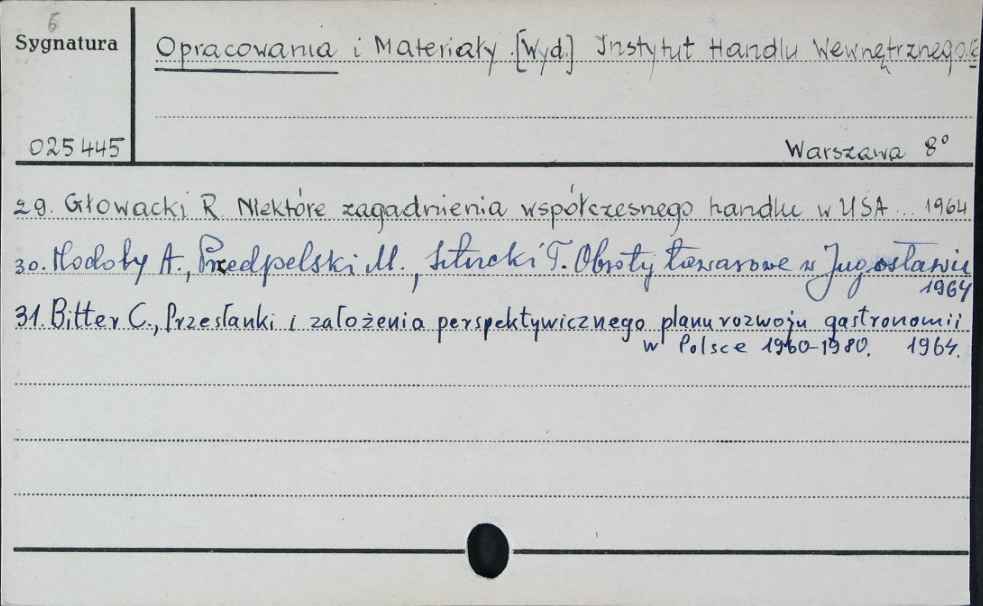 6
Sygnatura
Opracowania i Materiały [Wyd.] Instytut Handlu Wewnętrznego.
025445
Warszawa 8°
29. Głowacki R Niektóre zagadnienia współczesnego handlu w USA ... 1964
30. A., Przedpelski M., T. Obroty towarowe w Jugosławii
1964
31. Bitter C., Przesłanki i założenia perspektywicznego planu rozwoju gastronomii
w Polsce 1960-1980. 1964.